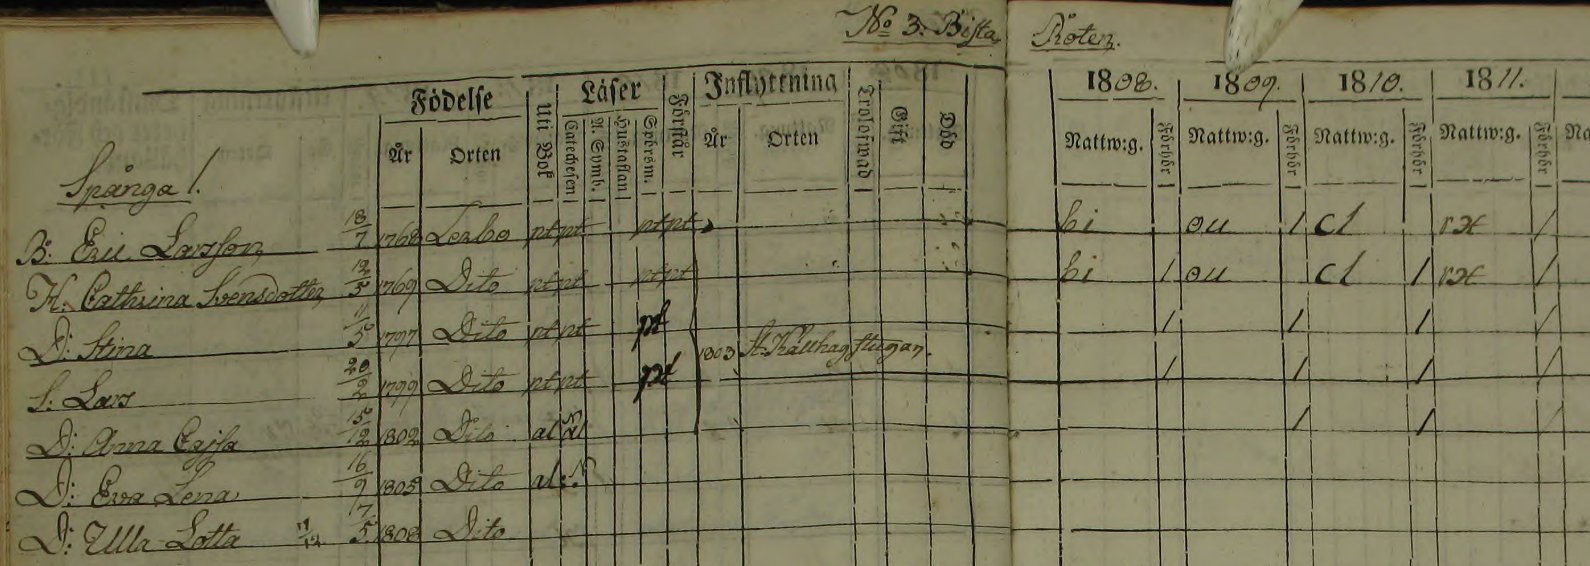 No 3. Bista Roten.
Födelse Läser Inflyttning 1808. 1809. 1810. 1811.
År Orten Uti Bok Catechesen A. Symb. Hustaflan Spörsm. Förstår År Orten Trolofwad Gift Död Nattw:g. Förhör Nattw:g. Förhör Nattw:g. Förhör Nattw:g. Förhör Na
Spånga 1.
B: Eric Larsson 18/7 1768 Lerbo pt pt pt pt hi ou / cl /
H. Cathrina Svensdotter 12/5 1769 Dito pt pt pt pt hi / ou cl / /
D: Stina 11/5 1797 Dito pt pt pt / / / /
1803
S: Lars 20/2 1799 Dito pt pt pt / / / /
D: Anna Cajsa 15/12 1802 Dito al al / / /
D: Eva Lena 16/9 1805 Dito al
D: Ulla Lotta 17/5 1808 Dito